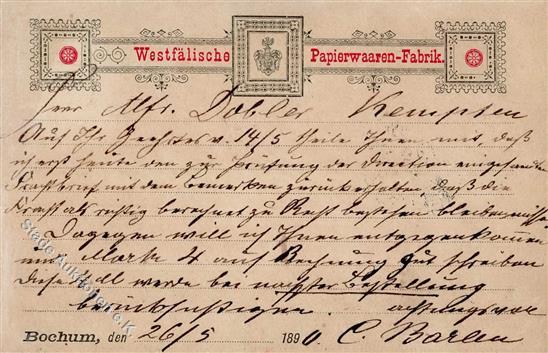 Westfälische Papierwaaren-Fabrik.
Herr Alfr. Dobler Kempten
Auf Ihr Geehrtes v. 14/5 theile Ihnen mit, daß
ich erst heute den zur Prüfung der Direction eingesandten
Frachtbrief mit dem Bemerken zurück erhalten daß die
Fracht als richtig berechnet zu Recht bestehen bleiben müsse
Dagegen will ich Ihnen entgegenkommen
und Marke 4 auf Rechnung gut schreiben
diese 4 M werde bei nächster Bestellung
berücksichtigen. achtungsvoll
Bochum, den 26/5 1890 C. Barlen
Stade Auktionen e.K.